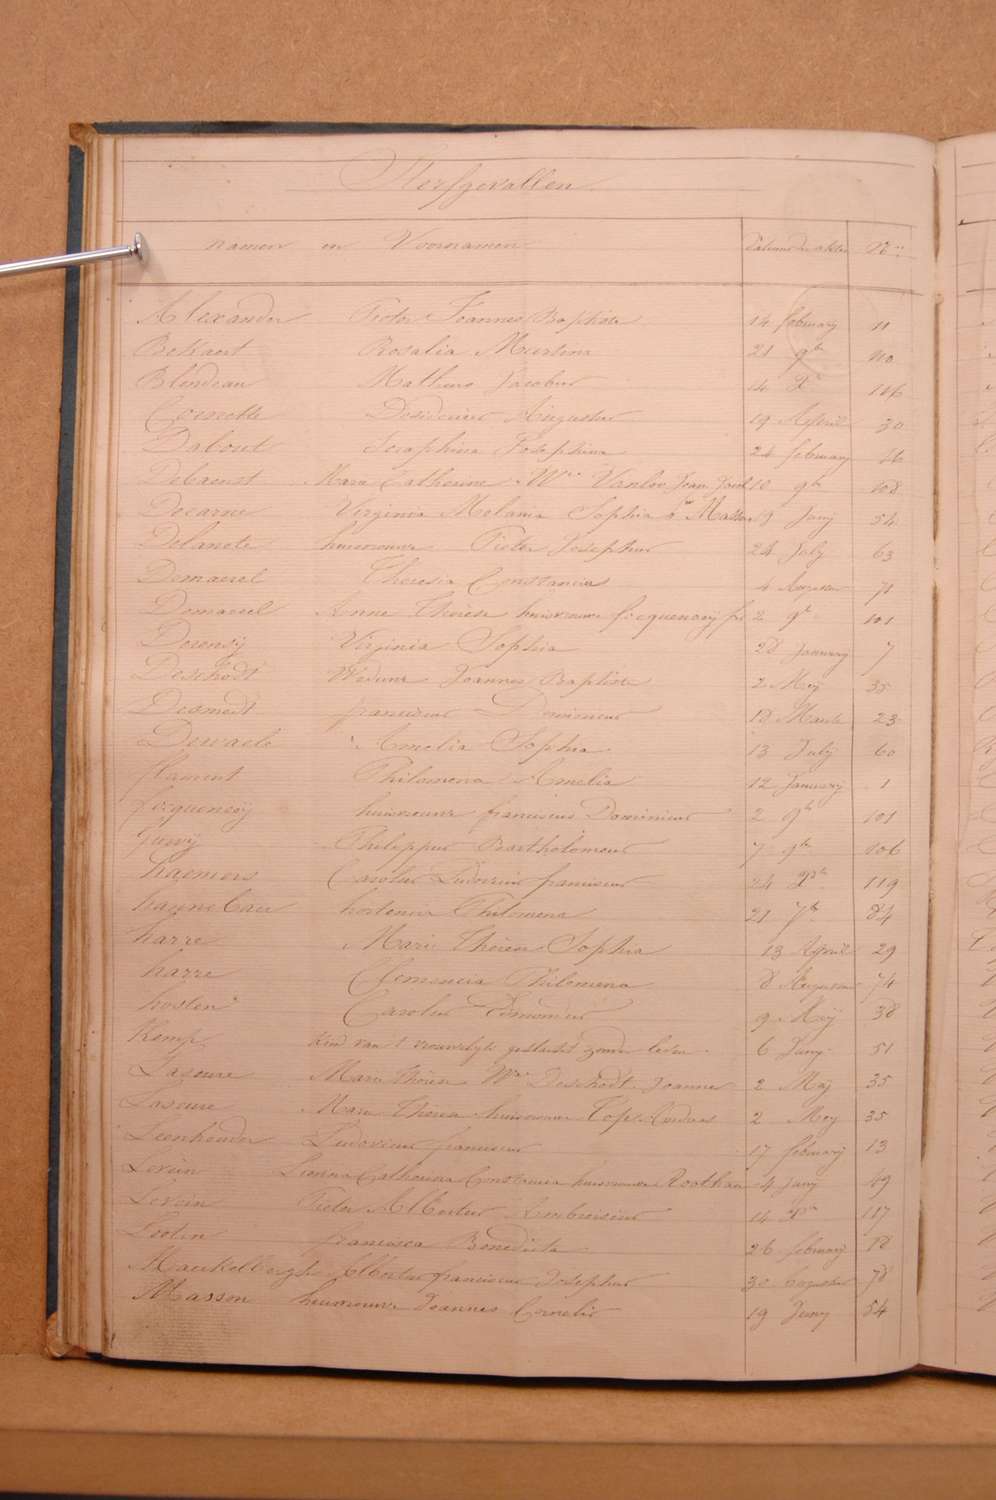 Sterfgevallen
namen en Voornamen Datums der akten N°
Alexander Pieter Joannes Baptiste 14 february 11
Bekaert Rosalia Martina 21 9b 110
Blondeau Matheus Jacobus 14 116
Cornette Desiderius Augustus 19 April 30
Dabout Seraphina Josephina 24 february 16
Debaenst Marie Catherine We Vanloo Jean 10 9b 108
Decarne Virginia Melania Sophia Masson 9 Juny 54
Delanote huisvrouw Pieter Josephus 24 July 63
Demaerel Theresia Constancia 4 Augustus 71
Demaerel Anne Therese huisvrouw focquenoey 2 9b 101
Deconsy Virginia Sophia 28 January 7
Deschodt Weduwe Joannes Baptiste 2 Mey 35
Desmedt franciscus Dominicus 18 Maart 23
Dewaele Amelia Sophia 13 July 60
flament Philomena Amelia 12 January 1
focquenoey huisvrouw franciscus Dominicus 2 9b 101
Philippus Bartholomeus 7 9b 106
haemers Carolus Ludovicus franciscus 24 119
hannebau hortensia Philomena 21 7b 84
harre Marie Therese Sophia 13 April 29
harre Clemencia Philomena 8 Augustus 74
hosten Carolus Edmondus 9 Mey 38
Kemp Kind van 't vrouwelyk geslacht zonder leven 6 Juny 51
Laseure Marie Therese We Deschodt Joannes 2 Mey 35
Laseure Marie Theresia huisvrouw Andreas 2 Mey 35
Leenhouder Ludovicus franciscus 17 february 13
Levein Catherina Constancia huisvrouw 4 Juny 49
Levein Pieter Albertus Ambrosius 14 117
Lootin francisca Benedicta 26 february 18
Maeckelbergh Albertus franciscus Josephus 30 Augustus 78
Masson huisvrouw Joannes Cornelis 19 Juny 54